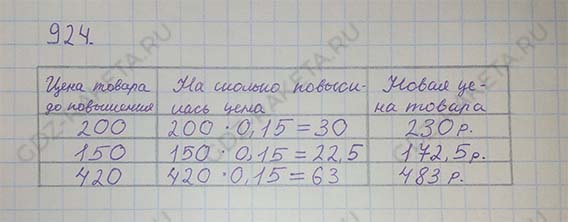 924.
Цена товара до повышения | На сколько повыси-лась цена | Новая це-на товара
200 | 200 · 0,15 = 30 | 230 р.
150 | 150 · 0,15 = 22,5 | 172,5 р.
420 | 420 · 0,15 = 63 | 483 р.
GDZ-RAKETA.RU